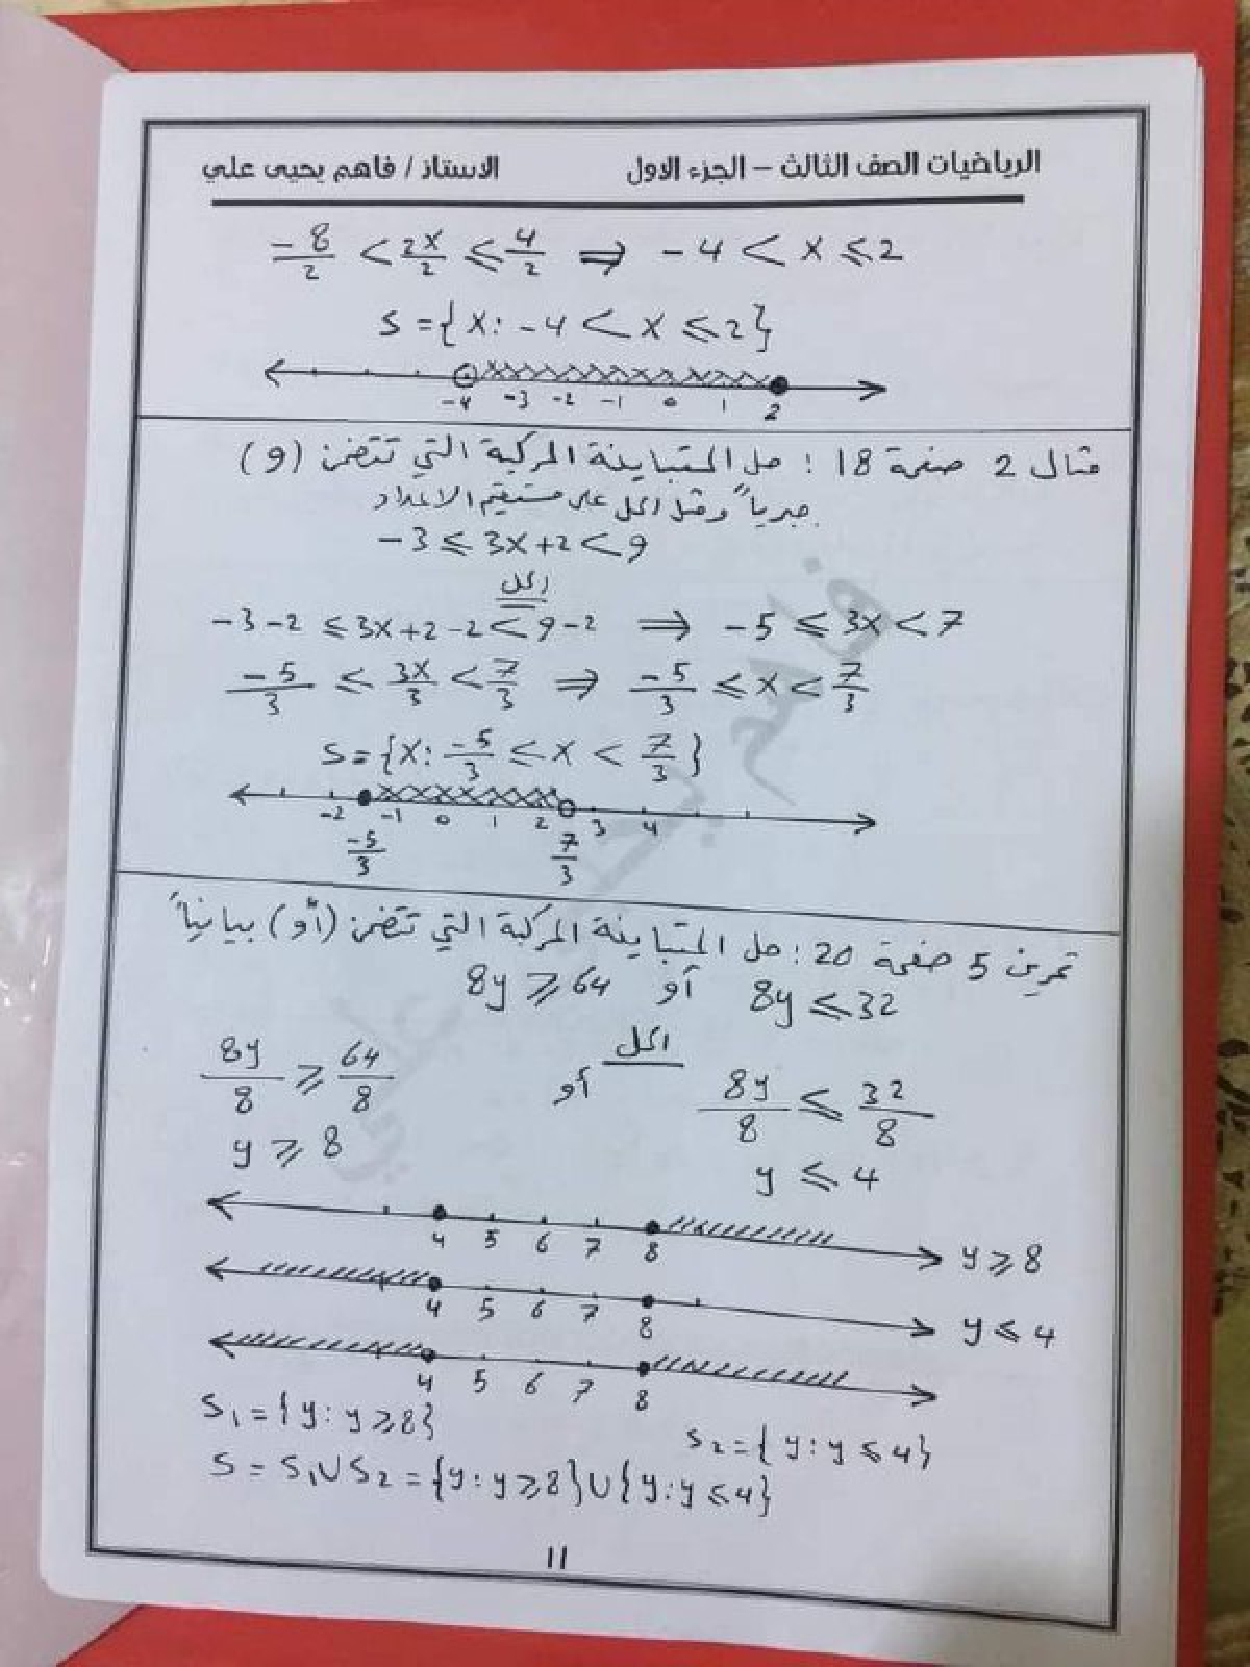 الرياضيات الصف الثالث – الجزء الاول الاستاذ / فاهم يحيى علي
-8/2 < 2x/2 ≤ 4/2 ⇒ -4 < x ≤ 2
S = {x: -4 < x ≤ 2}
-4 -3 -2 -1 0 1 2
مثال 2 صفحة 18 : حل المتباينة المركبة التي تتضمن (و)
جبرياً ومثل الحل على مستقيم الاعداد
-3 ≤ 3x+2 < 9
الحل
-3-2 ≤ 3x+2-2 < 9-2 ⇒ -5 ≤ 3x < 7
-5/3 ≤ 3x/3 < 7/3 ⇒ -5/3 ≤ x < 7/3
S = {x: -5/3 ≤ x < 7/3}
-2 -1 0 1 2 3 4
-5/3 7/3
تمرين 5 صفحة 20 : حل المتباينة المركبة التي تتضمن (أو) بيانياً
8y ≥ 64 أو 8y ≤ 32
الحل
8y/8 ≥ 64/8 أو 8y/8 ≤ 32/8
y ≥ 8 y ≤ 4
4 5 6 7 8 y ≥ 8
4 5 6 7 8 y ≤ 4
4 5 6 7 8
S₁ = {y: y ≥ 8} S₂ = {y: y ≤ 4}
S = S₁ ∪ S₂ = {y: y ≥ 8} ∪ {y: y ≤ 4}
11